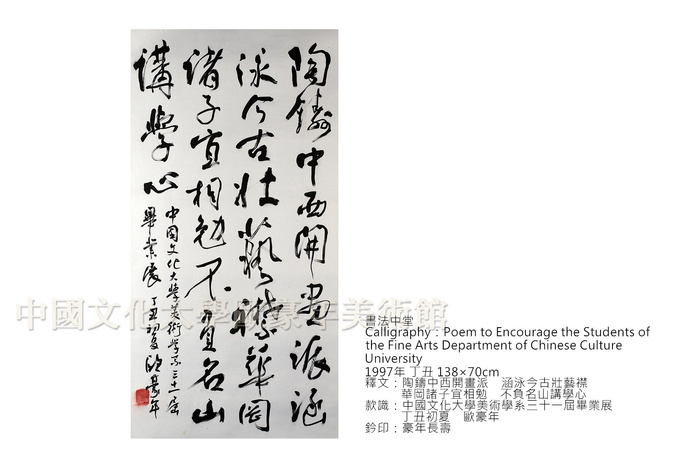 陶鑄中西開畫派涵
泳今古壯藝襟華岡
諸子宜相勉不負名山
講學心
中國文化大學美術學系三十一屆
畢業展 丁丑初夏 歐豪年
中國文化大學歐豪年美術館
書法中堂
Calligraphy：Poem to Encourage the Students of
the Fine Arts Department of Chinese Culture
University
1997年 丁丑 138×70cm
釋文：陶鑄中西開畫派　涵泳今古壯藝襟
華岡諸子宜相勉　不負名山講學心
款識：中國文化大學美術學系三十一屆畢業展
丁丑初夏　歐豪年
鈐印：豪年長壽